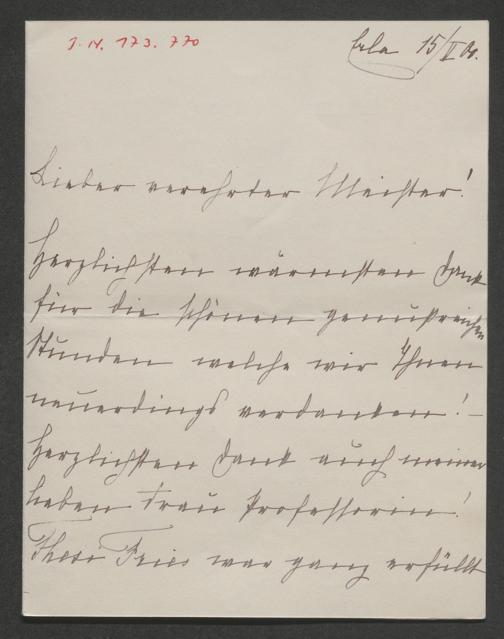 I. N. 173.770
Erla 15/II 10.
Lieber verehrter Meister!
Herzlichsten wärmsten Dank
für die schönen genußreichen
Stunden welche wir Ihnen
neuerdings verdanken! –
Herzlichsten Dank auch meiner
lieben Frau Professorin!
Thesi Fries war ganz erfüllt